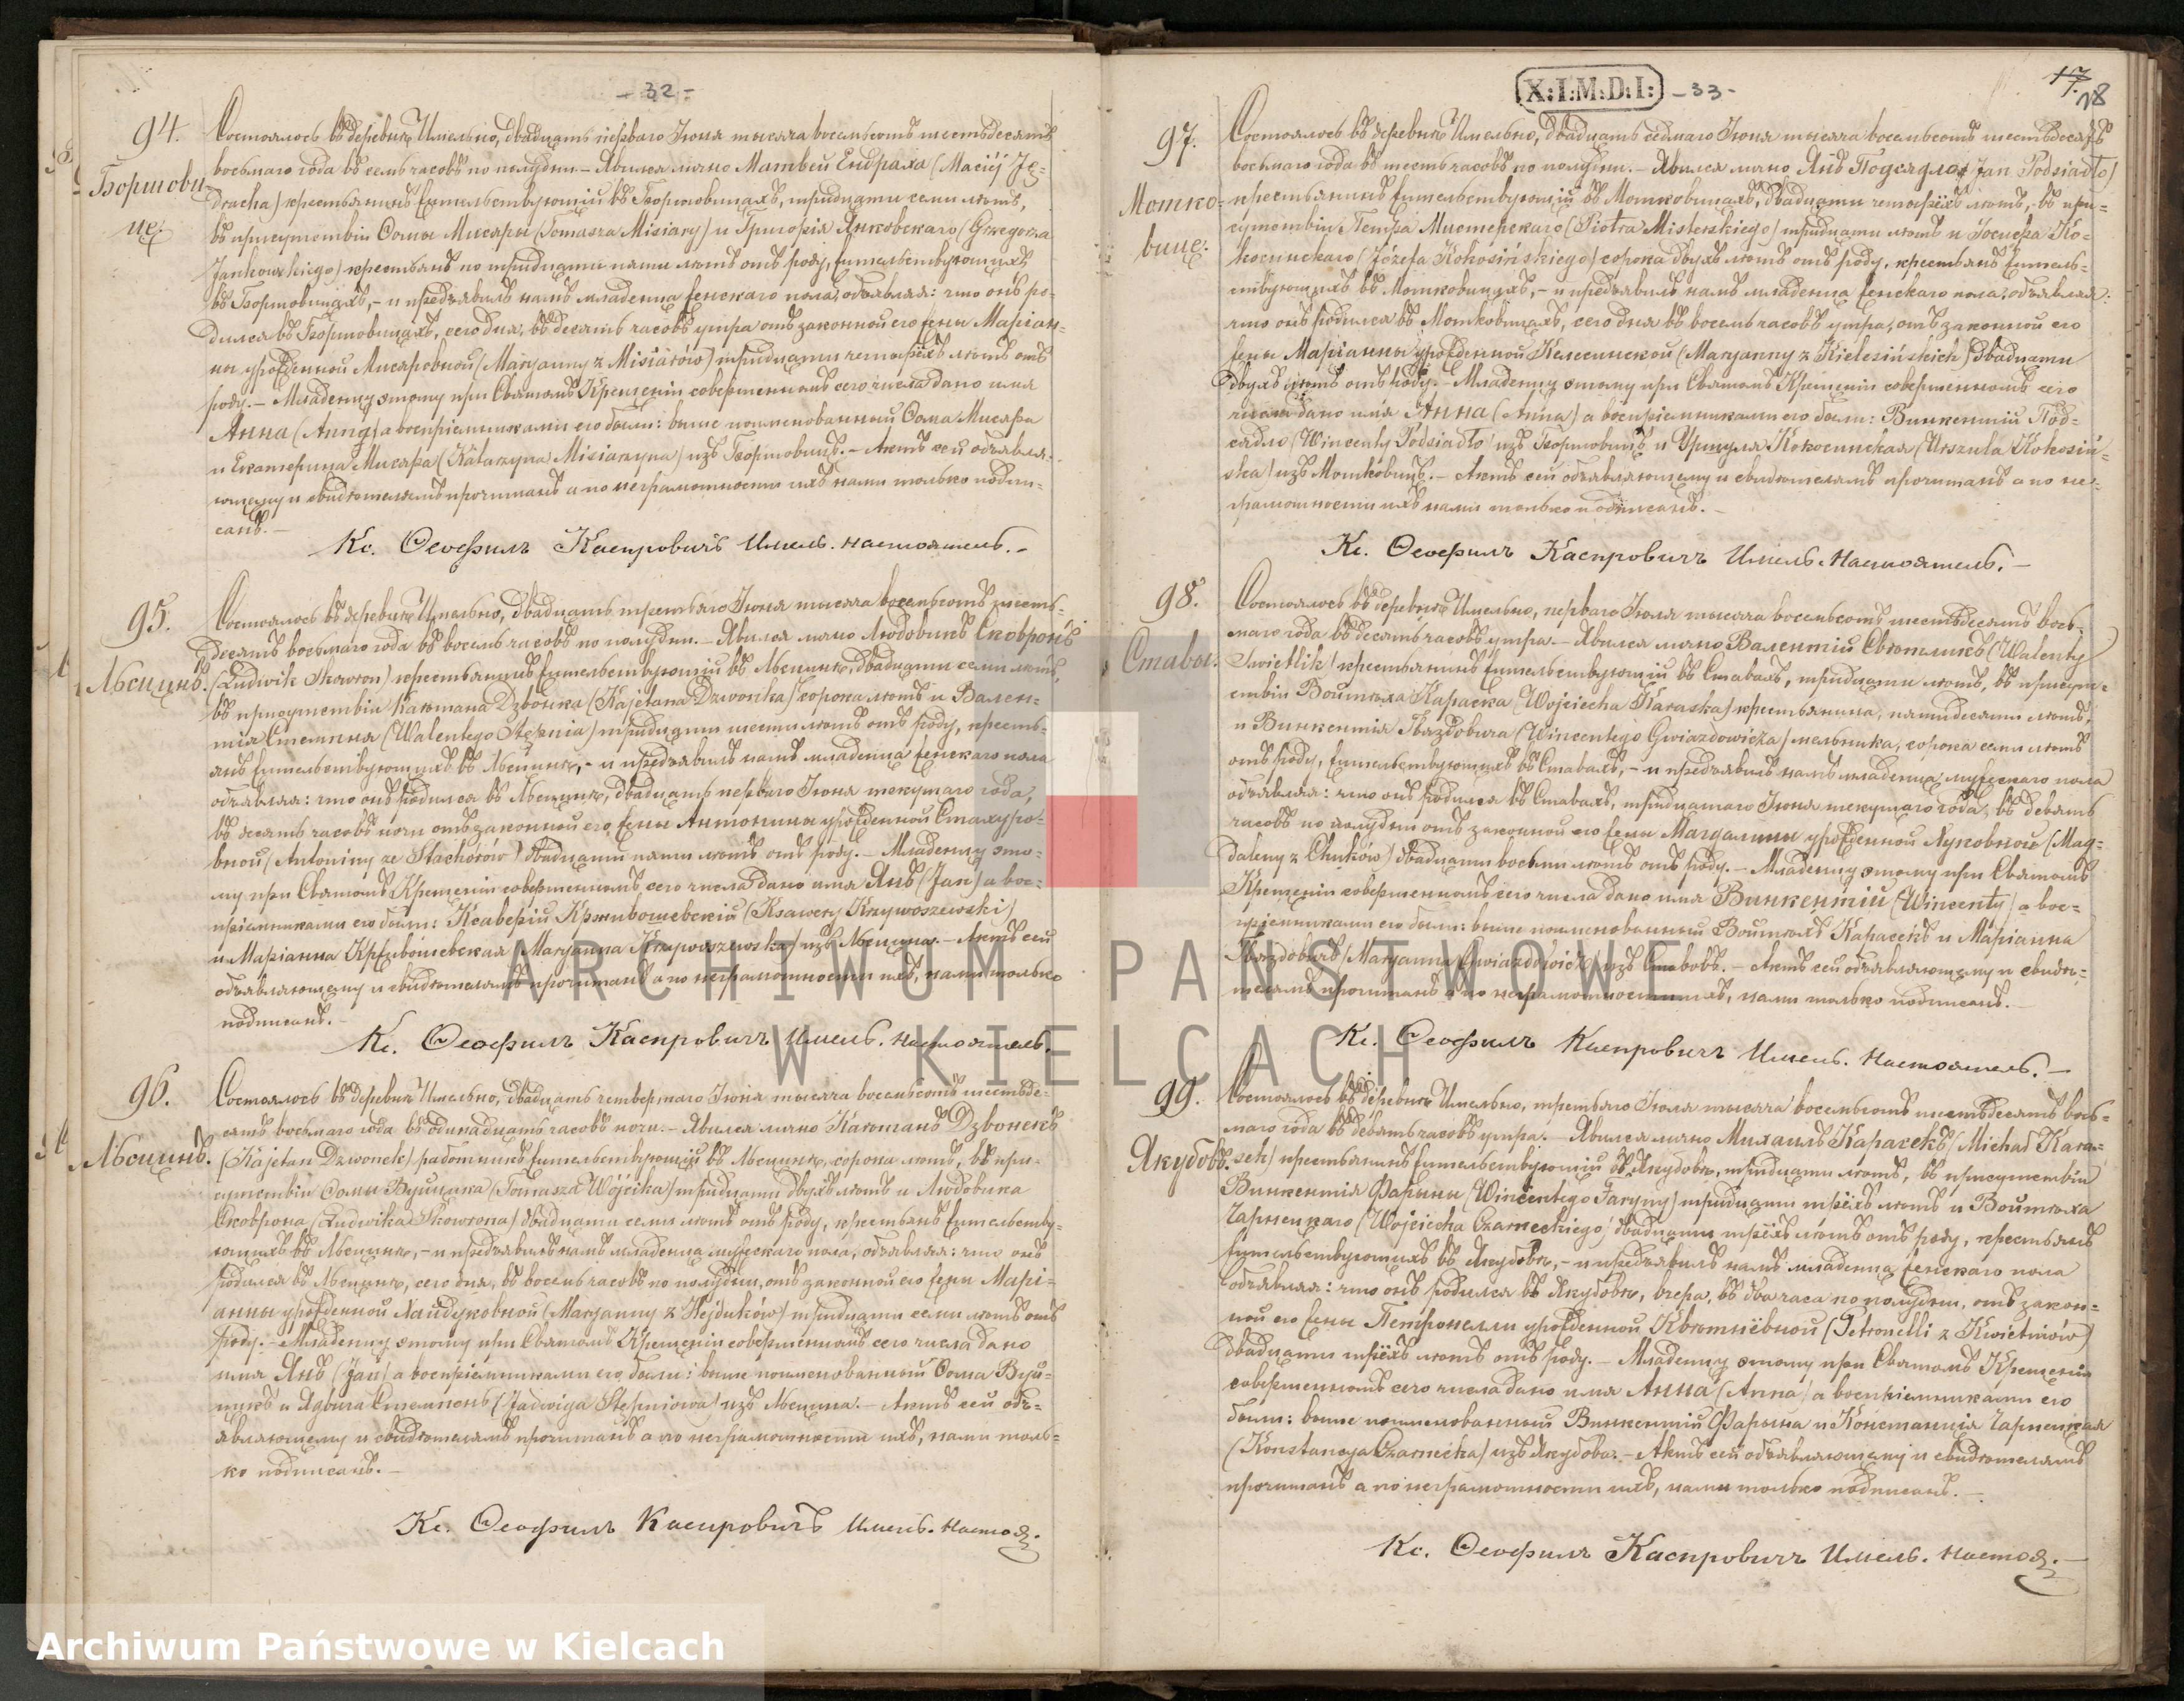 - 32 -
94.
Боршови-
це.
Состоялось въ деревнѣ Имельно, двадцать перваго Іюня тысяча восемьсотъ шестьдесятъ
восьмаго года въ семь часовъ по полудни. – Явился лично Матвей Ендраха (Maciéj Ję-
dracha) крестьянинъ жительствующій въ Боршовицахъ, тридцати семи лѣтъ,
въ присутствіи Ѳомы Мисяры (Tomasza Misiary) и Григорія Янковскаго (Grzegorza
Jankowskiego) крестьянъ по тридцати пяти лѣтъ отъ роду, жительствующихъ
въ Боршовицахъ, – и предъявилъ намъ младенца женскаго пола, объявляя: что онъ ро-
дился въ Боршовицахъ, сего дня, въ десять часовъ утра отъ законной его жены Маріан-
ны урожденной Мисяровной (Maryanny z Misiarów) тридцати четырёхъ лѣтъ отъ
роду. – Младенцу этому при Святомъ Крещеніи совершенномъ сего числа дано имя
Анна (Anna) а воспріемниками его были: выше поименованный Ѳома Мисяра
и Екатерина Мисяра (Katarzyna Misiarzyna) изъ Боршовицъ. – Актъ сей объявля-
ющему и свидѣтелямъ прочитанъ а по неграмотности ихъ нами только подпи-
санъ. –
Кс. Ѳеофилъ Каспровичъ Имель. настоятель. –
95.
Лѣсцинъ.
Состоялось въ деревнѣ Имельно, двадцать третьяго Іюня тысяча восемьсотъ шесть-
десятъ восьмаго года въ восемь часовъ по полудни. – Явился лично Людовикъ Сковронъ
(Ludwik Skowron) крестьянинъ жительствующій въ Лѣсцинѣ, двадцати семи лѣтъ,
въ присутствіи Каэтана Дзвонка (Kajetana Dzwonka) сорока лѣтъ и Вален-
тія Стемпня (Walentego Stępnia) тридцати шести лѣтъ отъ роду, кресть-
янъ жительствующихъ въ Лѣсцинѣ, – и предъявилъ намъ младенца женскаго пола
объявляя: что онъ родился въ Лѣсцинѣ, двадцать перваго Іюня текущаго года,
въ десять часовъ ночи отъ законной его жены Антонины урожденной Стахуро-
вной (Antoniny ze Stachórów) двадцати пяти лѣтъ отъ роду. – Младенцу это-
му при Святомъ Крещеніи совершенномъ сего числа дано имя Янъ (Jan) а вос-
пріемниками его были: Ксаверій Крживошевскій (Ksawery Krzywoszewski)
и Маріанна Крживошевская (Maryanna Krzywoszewska) изъ Лѣсцина. – Актъ сей
объявляющему и свидѣтелямъ прочитанъ а по неграмотности ихъ, нами только
подписанъ. –
Кс. Ѳеофилъ Каспровичъ Имель. настоятель.
96.
Лѣсцинъ.
Состоялось въ деревнѣ Имельно, двадцать четвертаго Іюня тысяча восемьсотъ шестьде-
сятъ восьмаго года въ одинадцать часовъ ночи. – Явился лично Каэтанъ Дзвонекъ
(Kajetan Dzwonek) работникъ жительствующій въ Лѣсцинѣ, сорока лѣтъ, въ при-
сутствіи Ѳомы Вуйцика (Tomasza Wójcika) тридцати двухъ лѣтъ и Людовика
Сковрона (Ludwika Skowrona) двадцати семи лѣтъ отъ роду, крестьянъ жительству-
ющихъ въ Лѣсцинѣ, – и предъявилъ намъ младенца мужескаго пола, объявляя: что онъ
родился въ Лѣсцинѣ, сего дня, въ восемь часовъ по полудни, отъ законной его жены Марі-
анны урожденной Гайдуковной (Maryanny z Hejduków) тридцати семи лѣтъ отъ
роду. – Младенцу этому при Святомъ Крещеніи совершенномъ сего числа дано
имя Янъ (Jan) а воспріемниками его были: выше поименованный Ѳома Вуй-
цикъ и Ядвига Стемпень (Jadwiga Stępniowa) изъ Лѣсцина. – Актъ сей объ-
являющему и свидѣтелямъ прочитанъ а по неграмотности ихъ, нами толь-
ко подписанъ. –
Кс. Ѳеофилъ Каспровичъ Имель. настоя.
X:I:M:D:I: - 33 -
17.
18
97.
Мотко-
вице.
Состоялось въ деревнѣ Имельно, двадцать седьмаго Іюня тысяча восемьсотъ шестьдесятъ
восьмаго года въ шесть часовъ по полудни. – Явился лично Янъ Подсядло (Jan Podsiadło)
крестьянинъ жительствующій въ Мотковицахъ, двадцати четырёхъ лѣтъ, въ при-
сутствіи Петра Мистерскаго (Piotra Misterskiego) тридцати лѣтъ и Іосифа Ко-
косинскаго (Józefa Kokosińskiego) сорока двухъ лѣтъ отъ роду, крестьянъ житель-
ствующихъ въ Мотковицахъ, – и предъявилъ намъ младенца женскаго пола, объявляя:
что онъ родился въ Мотковицахъ, сего дня въ восемь часовъ утра, отъ законной его
жены Маріанны урожденной Келесинской (Maryanny z Kielesińskich) двадцати
двухъ лѣтъ отъ роду. – Младенцу этому при Святомъ Крещеніи совершенномъ сего
числа дано имя Анна (Anna) а воспріемниками его были: Викентій Под-
сядло (Wincenty Podsiadło) изъ Боршовицъ и Уршуля Кокосинская (Urszula Kokosiń-
ska) изъ Мотковицъ. – Актъ сей объявляющему и свидѣтелямъ прочитанъ а по не-
грамотности ихъ нами только подписанъ. –
Кс. Ѳеофилъ Каспровичъ Имель. Настоятель. –
98.
Ставы.
Состоялось въ деревнѣ Имельно, перваго Іюля тысяча восемьсотъ шестьдесятъ вось-
маго года въ десять часовъ утра. – Явился лично Валентій Свѣтликъ (Walenty
Świetlik) крестьянинъ жительствующій въ Ставахъ, тридцати лѣтъ, въ присут-
ствіи Войтѣха Караска (Wojciecha Karaska) крестьянина, пятидесяти лѣтъ,
и Винкентія Гвяздовича (Wincentego Gwiazdowicza) мельника, сорока семи лѣтъ
отъ роду, жительствующихъ въ Ставахъ, – и предъявилъ намъ младенца мужескаго пола
объявляя: что онъ родился въ Ставахъ, тридцатаго Іюня текущаго года, въ девять
часовъ по полудни отъ законной его жены Магдалины урожденной Луковной (Mag-
daleny z Łuków) двадцати восьми лѣтъ отъ роду. – Младенцу этому при Святомъ
Крещеніи совершенномъ сего числа дано имя Винкентій (Wincenty) а вос-
пріемниками его были: выше поименованный Войтѣхъ Карасекъ и Маріанна
Гвяздовичъ (Maryanna Gwiazdowicz) изъ Ставовъ. – Актъ сей объявляющему и свидѣ-
телямъ прочитанъ а по неграмотности ихъ, нами только подписанъ. –
Кс. Ѳеофилъ Каспровичъ Имель. Настоятель. –
99.
Якубовъ.
Состоялось въ деревнѣ Имельно, третьяго Іюля тысяча восемьсотъ шестьдесятъ вось-
маго года въ девять часовъ утра. – Явился лично Михаилъ Карасекъ (Michał Kara-
sek) крестьянинъ жительствующій въ Якубовѣ, тридцати лѣтъ, въ присутствіи
Винкентія Фарыны (Wincentego Faryny) тридцати трёхъ лѣтъ и Войтѣха
Чарнецкаго (Wojciecha Czarneckiego) двадцати трёхъ лѣтъ отъ роду, крестьянъ
жительствующихъ въ Якубовѣ, – и предъявилъ намъ младенца женскаго пола
объявляя: что онъ родился въ Якубовѣ, вчера, въ два часа по полудни, отъ закон-
ной его жены Петронелли урожденной Квѣтнёвной (Petronelli z Kwietniów)
двадцати трёхъ лѣтъ отъ роду. – Младенцу этому при Святомъ Крещеніи
совершенномъ сего числа дано имя Анна (Anna) а воспріемниками его
были: выше поименованный Винкентій Фарына и Констанція Чарнецкая
(Konstancya Czarnecka) изъ Якубова. – Актъ сей объявляющему и свидѣтелямъ
прочитанъ а по неграмотности ихъ, нами только подписанъ. –
Кс. Ѳеофилъ Каспровичъ Имель. настоя. –
ARCHIWUM PAŃSTWOWE
W KIELCACH
Archiwum Państwowe w Kielcach